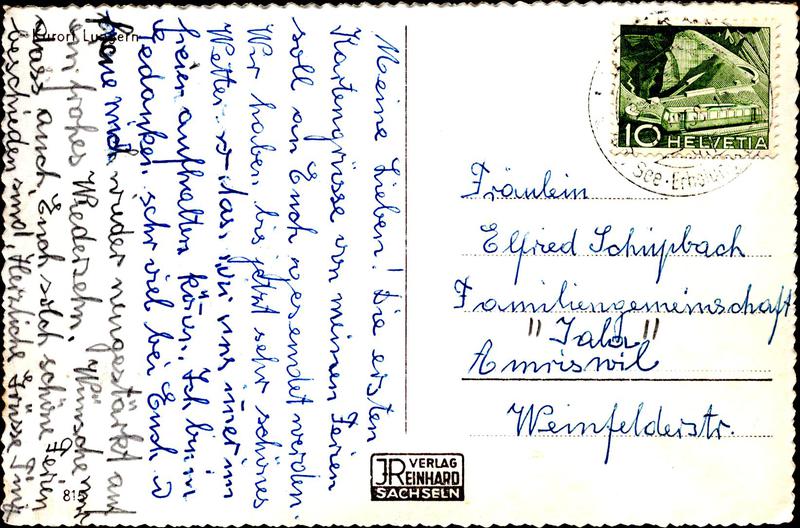 Kurort Lungern
Meine Lieben! Die ersten
Kartengrüsse von meinen Ferien
soll an Euch gesendet werden.
Wir haben bis jetzt sehr schönes
Wetter dass wir uns imer im
freien aufhalten könen. Ich bin in
Gedanken sehr viel bei Euch
freue mich wieder neugestärkt auf
ein frohes Wiedersehn. Wünsche nur
dass auch Euch solch schöne Ferien
beschieden sind, Herzliche Grüsse
815
VERLAG
JREINHARD
SACHSELN
10 HELVETIA
See-Erholu
Fräulein
Elfried Schüpbach
Familiengemeinschaft
Amriswil
Weinfelderstr.